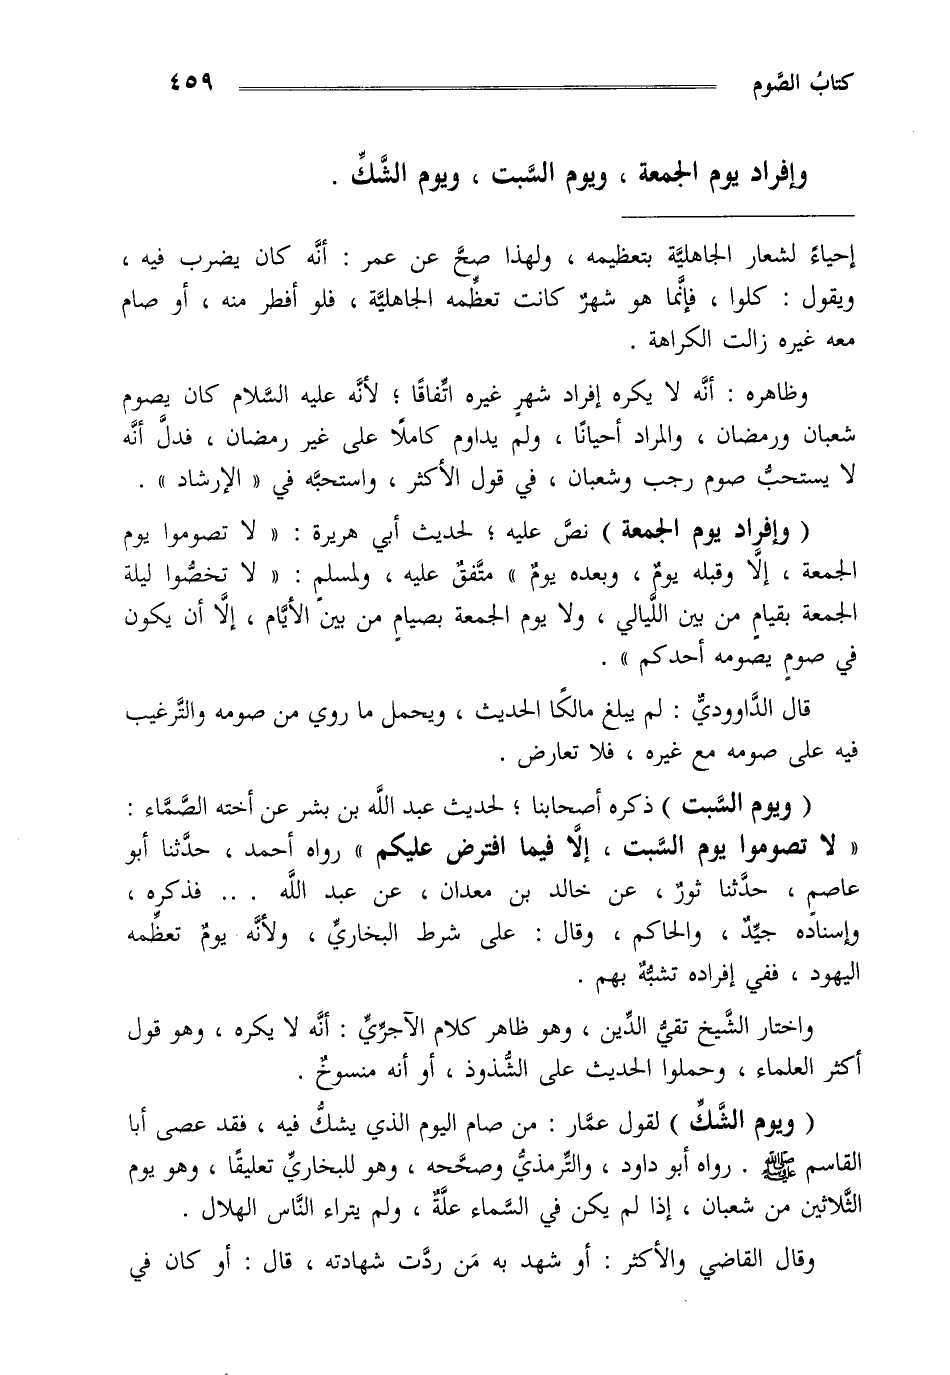 كتابُ الصَّوم ٤٥٩
وإفراد يوم الجمعة ، ويوم السَّبت ، ويوم الشَّكِّ .
إحياءً لشعار الجاهليَّة بتعظيمه ، ولهذا صحَّ عن عمر : أنَّه كان يضرب فيه ،
ويقول : كلوا ، فإنَّما هو شهرٌ كانت تعظِّمه الجاهليَّة ، فلو أفطر منه ، أو صام
معه غيره زالت الكراهة .
وظاهره : أنَّه لا يكره إفراد شهرٍ غيره اتِّفاقًا ؛ لأنَّه عليه السَّلام كان يصوم
شعبان ورمضان ، والمراد أحيانًا ، ولم يداوم كاملًا على غير رمضان ، فدلَّ أنَّه
لا يستحبُّ صوم رجب وشعبان ، في قول الأكثر ، واستحبَّه في « الإرشاد » .
( وإفراد يوم الجمعة ) نصَّ عليه ؛ لحديث أبي هريرة : « لا تصوموا يوم
الجمعة ، إلَّا وقبله يومٌ ، وبعده يومٌ » متَّفقٌ عليه ، ولمسلمٍ : « لا تخصُّوا ليلة
الجمعة بقيامٍ من بين اللَّيالي ، ولا يوم الجمعة بصيامٍ من بين الأيَّام ، إلَّا أن يكون
في صومٍ يصومه أحدكم » .
قال الدَّاووديُّ : لم يبلغ مالكًا الحديث ، ويحمل ما روي من صومه والتَّرغيب
فيه على صومه مع غيره ، فلا تعارض .
( ويوم السَّبت ) ذكره أصحابنا ؛ لحديث عبد اللَّه بن بشر عن أخته الصَّمَّاء :
« لا تصوموا يوم السَّبت ، إلَّا فيما افترض عليكم » رواه أحمد ، حدَّثنا أبو
عاصمٍ ، حدَّثنا ثورٌ ، عن خالد بن معدان ، عن عبد اللَّه ... فذكره ،
وإسناده جيِّدٌ ، والحاكم ، وقال : على شرط البخاريِّ ، ولأنَّه يومٌ تعظِّمه
اليهود ، ففي إفراده تشبُّهٌ بهم .
واختار الشَّيخ تقيُّ الدِّين ، وهو ظاهر كلام الآجرِّيِّ : أنَّه لا يكره ، وهو قول
أكثر العلماء ، وحملوا الحديث على الشُّذوذ ، أو أنه منسوخٌ .
( ويوم الشَّكِّ ) لقول عمَّار : من صام اليوم الذي يشكُّ فيه ، فقد عصى أبا
القاسم ﷺ . رواه أبو داود ، والتِّرمذيُّ وصحَّحه ، وهو للبخاريِّ تعليقًا ، وهو يوم
الثَّلاثين من شعبان ، إذا لم يكن في السَّماء علَّةٌ ، ولم يتراء النَّاس الهلال .
وقال القاضي والأكثر : أو شهد به مَن ردَّت شهادته ، قال : أو كان في